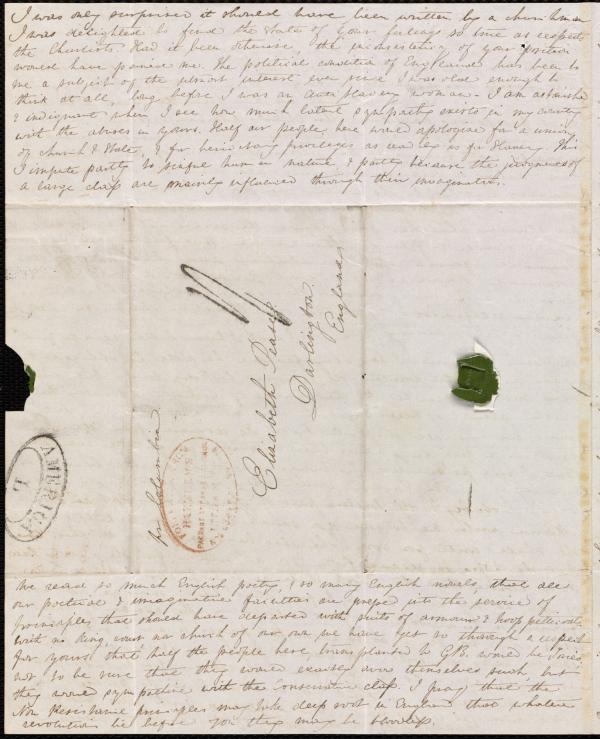 I was only surprised it should have been written by a churchman
I was delighted to find the state of your feelings so true as respects
the Chartists. Had it been otherwise, the inconsistency of your position
would have pained me. The political condition of England has been to
me a subject of the utmost interest ever since I was old enough to
think at all, long before I was an anti slavery woman. I am astonished
& indignant when I see how much latent sympathy exists in my country
with the abuses in yours. Half our people here would apologise for a union
of church & State, & for hereditary privileges as readily as for slavery. This
I impute partly to sinful human nature & partly because the judgments of
a large class are mainly influenced through their imagination.
Elizabeth Pease
Darlington
England
pr Columbia
AMERICA
L
We read so much English poetry, & so many English novels, that all
our poetical & imaginative faculties are pressed into the service of
principles that should have departed with suits of armour & hoop petticoats
with no King, court nor church of our own we have yet so thorough a respect
for yours, that half the people here transplanted to GB would be Tories,
not to be sure that they would exactly own themselves such, but
they would sympathise with the Conservative class. I pray that the
Non Resistance principles may take deep root in England that whatever
revolutions lie before you they may be bloodless.